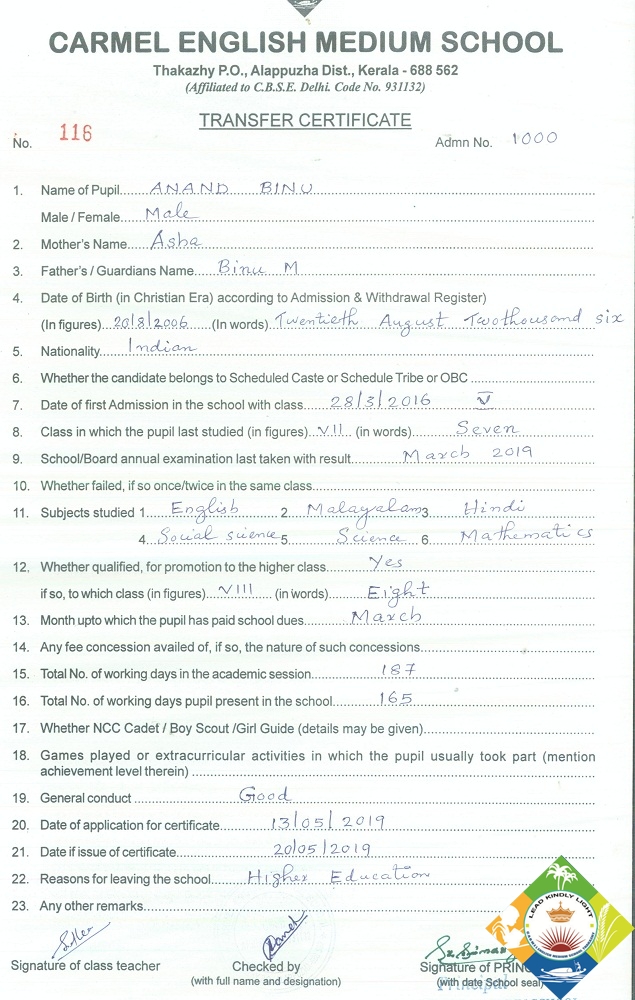 CARMEL ENGLISH MEDIUM SCHOOL
Thakazhy P.O., Alappuzha Dist., Kerala - 688 562
(Affiliated to C.B.S.E. Delhi. Code No. 931132)
TRANSFER CERTIFICATE
No. 116 Admn No. 1000
1. Name of Pupil ANAND BINU
Male / Female Male
2. Mother's Name Asha
3. Father's / Guardians Name Binu M
4. Date of Birth (in Christian Era) according to Admission & Withdrawal Register)
(In figures) 20/8/2006 (In words) Twentieth August Twothousand six
5. Nationality Indian
6. Whether the candidate belongs to Scheduled Caste or Schedule Tribe or OBC
7. Date of first Admission in the school with class 28/3/2016 V
8. Class in which the pupil last studied (in figures) VII (in words) Seven
9. School/Board annual examination last taken with result March 2019
10. Whether failed, if so once/twice in the same class
11. Subjects studied 1 English 2 Malayalam 3 Hindi
4 Social science 5 Science 6 Mathematics
12. Whether qualified, for promotion to the higher class Yes
if so, to which class (in figures) VIII (in words) Eight
13. Month upto which the pupil has paid school dues March
14. Any fee concession availed of, if so, the nature of such concessions
15. Total No. of working days in the academic session 187
16. Total No. of working days pupil present in the school 165
17. Whether NCC Cadet / Boy Scout /Girl Guide (details may be given)
18. Games played or extracurricular activities in which the pupil usually took part (mention
achievement level therein)
19. General conduct Good
20. Date of application for certificate 13/05/2019
21. Date if issue of certificate 20/05/2019
22. Reasons for leaving the school Higher Education
23. Any other remarks
LEAD KINDLY LIGHT
Signature of class teacher Checked by Signature of PRIN
(with full name and designation) (with date School seal)
Principal